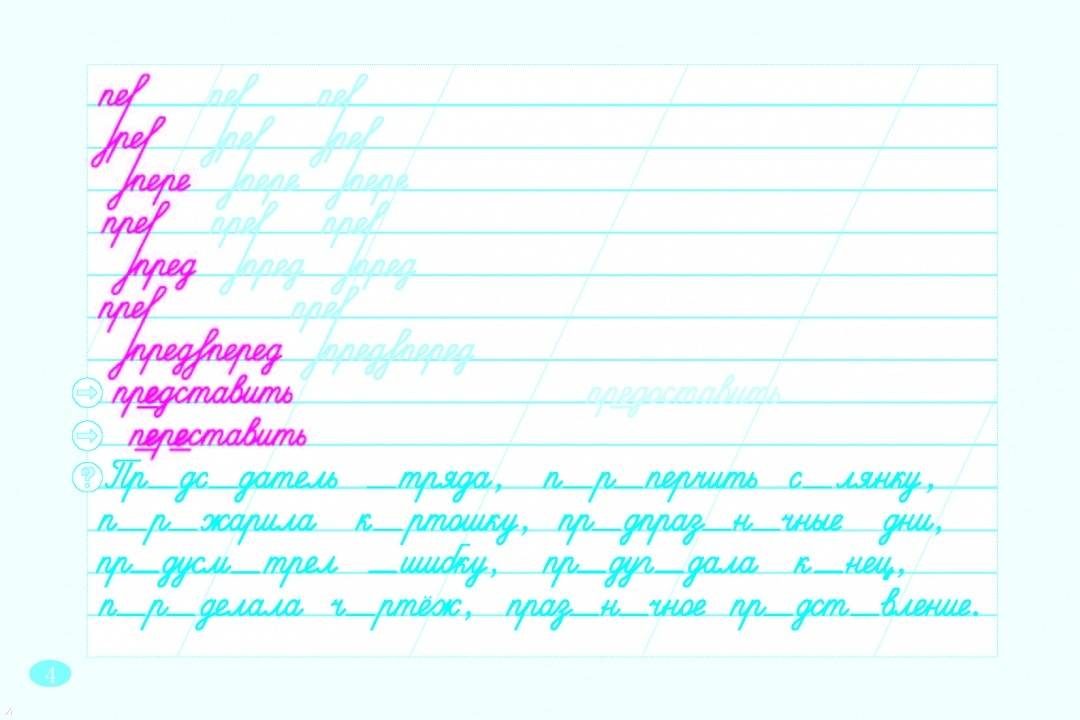 пер пер пер
пре пре пре
пере пере пере
пре пре пре
пред пред пред
пре пре
пред перед пред перед
представить предоставить
переставить
? Пр_дс_датель _тряда, п_р_перчить с_лянку,
п_р_жарила к_ртошку, пр_дпраз_н_чные дни,
пр_дусм_трел _шибку, пр_дуг_дала к_нец,
п_р_делала ч_ртёж, праз_н_чное пр_дст_вление.
4